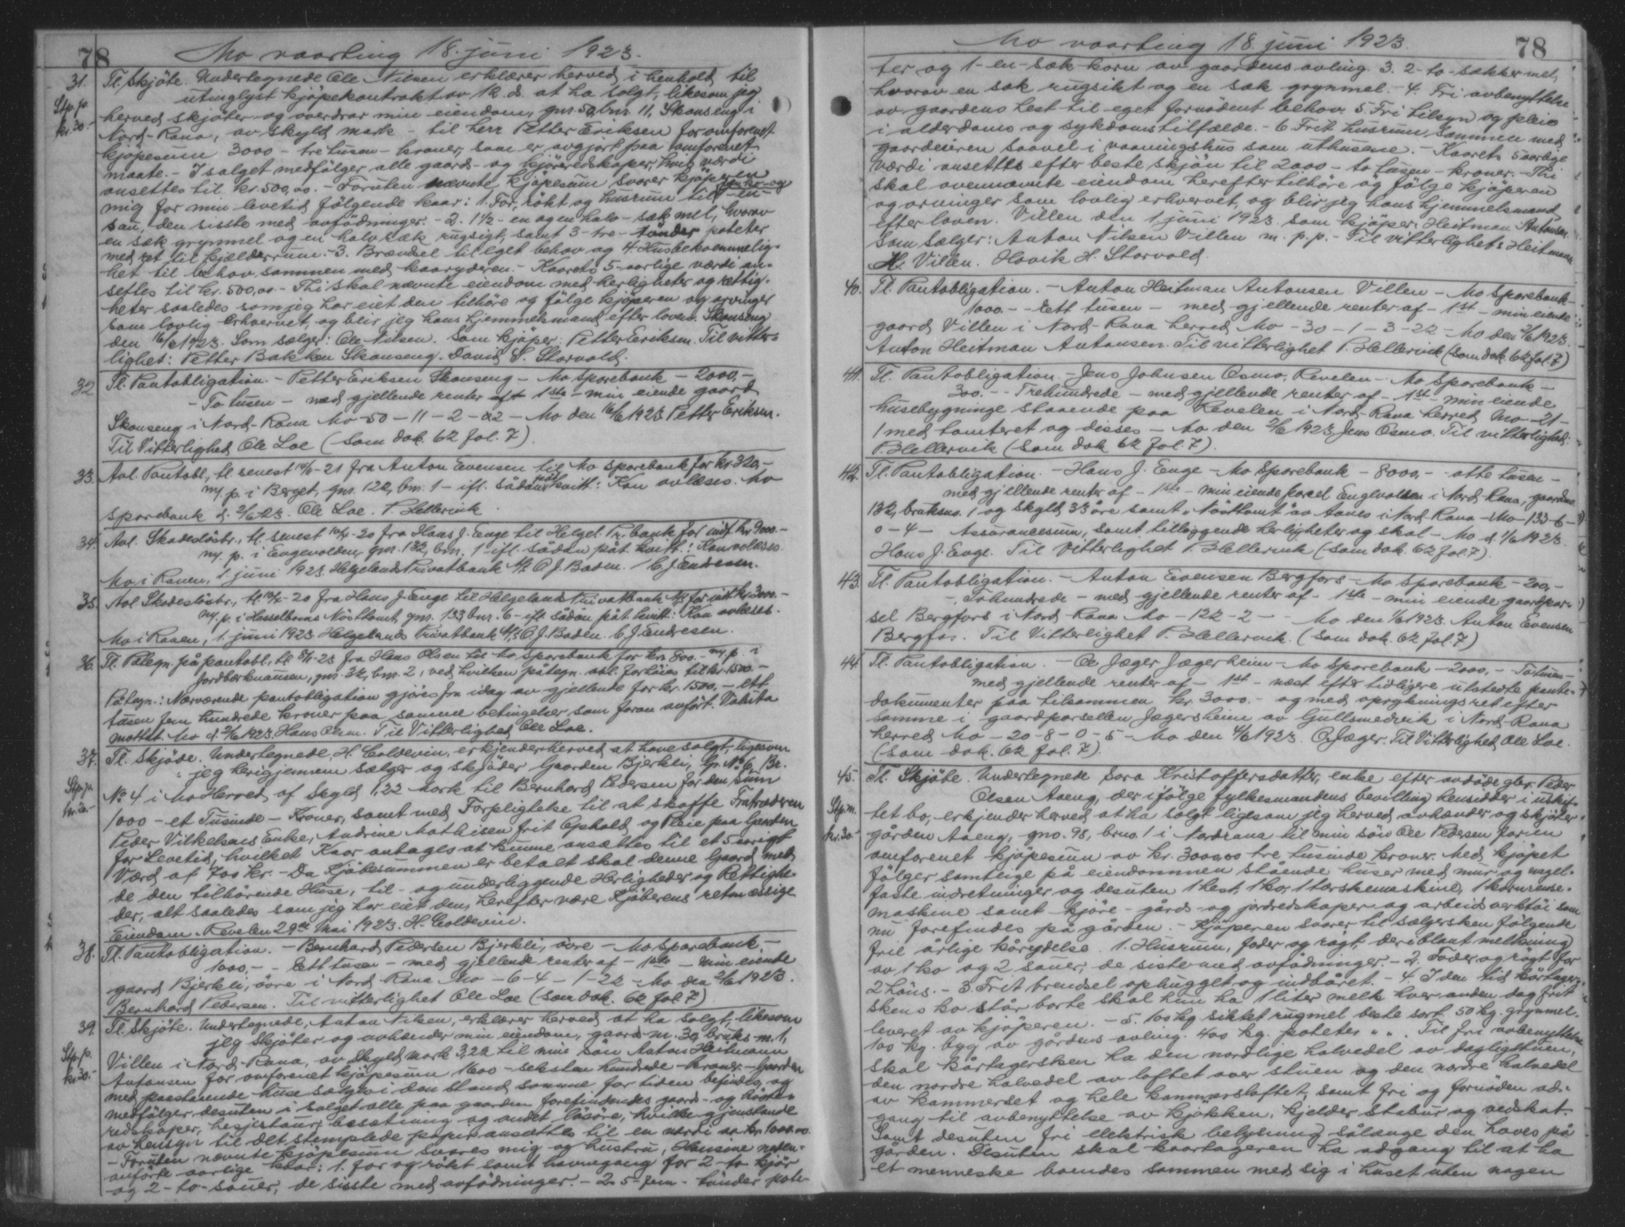 78 Mo vaarting 18. juni 1923.
31. Tl. Skjöte. Underlegnede Ole Nilsen erklærer herved i henhold til
utinglyst kjöpekontrakt av 1k. d. at ha solgt, likesom jeg
Stp. p. kr. 30.- herved skjöter og overdrar min eiendom, gnr. 50, bnr. 11, Skonseng i
Nord-Rana, av skyld mark - til herr Petter Eriksen for omforenet
kjöpesum 3000 - tre tusen - kroner, som er avgjort paa omforenet
maate. - I salget medfölger alle gaards- og kjöreredskaper, hvis værdi
ansettes til kr. 500,00. - Foruten nævnte kjöpesum svarer kjöperen
mig for min levetid fölgende kaar: 1. For, rökt og husrum til en
sau, den sisste med avfödninger. - 2. 1½ - en og en halv - sæk mel, hvorav
en sæk grynmel og en halv sæk rugsigt, samt 3 - tre - tönder poteter
med ret til kjælderrum. - 3. Brændsel til eget behov og 4 Husbekvemmelig-
het til behov sammen med kaaryderen. - Kaarets 5-aarlige værdi an-
settes til kr. 500,00 - Thi skal nævnte eiendom med herligheter og rettig-
heter saaledes som jeg har eiet den tilhöre og fölge kjöperen og arvinger
som lovlig erhvervet, og blir jeg hans hjemmelsmand efter loven. Skonseng
den 16/6 1923. Som sælger: Ole Nilsen. Som kjöper: Petter Eriksen. Til vitter-
lighet: Petter Bakken Skonseng. David S. Storvold.
32. Tl. Pantobligation. - Petter Eriksen Skonseng - Mo Sparebank - 2000,-
- To tusen - med gjellende renter af 1ste - min eiende gaard
Skonseng i Nord-Rana Mo - 50 - 11 - 2 - 22 - Mo den 16/6 1923 Petter Eriksen.
Til Vitterlighed Ole Loe (som dok. 62 fol. 7).
33. Avl. Pantobl., tl. senest - 21 fra Anton Evensen til Mo Sparebank for kr. 320,-
m. p. i Berget, gnr. 122, bnr. 1 - ifl. sådan påt. kvitt: Kan avlæses. Mo
Sparebank d. 2/6 23. Ole Loe. P. Hellervik.
34. Avl. Skadeslöstr., tl. senest - 20 fra Hans J. Enge til Helgel. Pr. bank for indt. kr. 9000.-
m. p. i Engevolden, gnr. 132, bnr. 1 ifl. sådan påt. kvitt: Kan avlæses.
Mo i Ranen, 1 juni 1923 Helgelands Privatbank A/S O. J. Baden. C. J. Endresen.
35. Avl. Skadeslöstr., tl. - 20 fra Hans J. Enge til Helgelands Privatbank A/S for indt. kr. 3000.-
m. p. i Hasselbernes Nöstlomt, gnr. 133 bnr. 6 - ifl. sådan påt. kvitt: Kan avlæses.
Mo i Ranen, 1. juni 1923 Helgelands Privatbank A/S O. J. Baden. C. J. Endresen.
36. Tl. Påtegn. på pantobl. tl. - 23 fra Hans Olsen til Mo sparebank for kr. 800.- m. p. i
Jordbærknausen, gnr. 32, bnr. 2, ved hvilken påtegn. obl. forhöies til kr. 1500.-
Påtegn.: Nærværende pantobligation gjöres fra idag av gjellende for kr. 1500,- Ett
tusen fem hundrede kroner paa samme betingelser som foran anfört. Valuta
mottat Mo d. 2/6 1923 Hans Olsen. Til Vitterlighed Ole Loe.
37. Tl. Skjöde. Underlegnede, H. Coldevin, erkjender herved at have solgt, ligesom
Stp. p. kr. 20.- jeg herigjennem sælger og skjöder Gaarden Bjerkli, Gr. No 6, Br.
No 4 i Mo Herred af Skyld 1,22 Mark til Bernhard Pedersen for den Sum
1000 - et Tusinde - Kroner, samt med Forpligtelse til at skaffe Fratræderen
Peder Vilhelmsens Enke, Andrine Mathisen frit Ophold og Pleie paa Gaarden
for Levetid, hvilket Kaar antages at kunne ansættes til et 5aarigt
Værd af 700 Kr. - Da Kjöbesummen er betalt skal denne Gaard med
de den tilhörende Huse, til- og underliggende Herligheder og Rettighe-
der, alt saaledes som jeg har eiet dem, herefter være Kjöberens retmæssige
Eiendom. Revelen 29de Mai 1923. H. Coldevin.
38. Tl. Pantobligation. - Bernhard Pedersen Bjerkli, övre - Mo Sparebank -
1000,- - Ett tusen - med gjellende renter af - 1ste - min eiende
gaard Bjerkli, övre i Nord Rana Mo - 6 - 4 - 1 - 22 - Mo den 2/6 1923.
Bernhard Pedersen. Til vitterlighet Ole Loe (som dok. 62 fol 7)
39. Tl. Skjöte. Underlegnede, Anton Nilsen, erklærer herved at ha solgt, likesom
Stp. p. kr. 20.- jeg skjöter og avhender min eiendom, gaards nr. 30, bruks nr. 1,
Villen i Nord-Rana, av Skyld mark 3,22 til min sön Anton Heitmann
Antonsen for omforenet kjöpesum 1600 - seksten hundrede - kroner. - Gaarden
med paastaaende huse sælges i den stand samme for tiden befindes, og
medfölger desuten i salget alle paa gaarden forefindendes gaard- og
redskaper, hesjestaur, besætning og andet lösöre, hvilke gjenstande
av hensyn til det stemplede papir ansættes til en værdi av kr. 1000.00.
- Foruten nævnte kjöpesum svares mig og hustru, Hansine neden-
anförte aarlige kaar: 1. for og rökt samt havnegang for 2 - to kjör
og 2 - to - sauer, de sisste med avfödninger. - 2. 5 - fem - tönder pote-
Mo vaarting 18. juni 1923. 78
ter og 1 - en - sæk korn av gaardens avling. 3. 2 - to - sækker mel,
hvorav en sæk rugsikt og en sæk grynmel. - 4. Fri avbenyttelse
av gaardens hest til eget fornödent behov. 5. Fri tilsyn og pleie
i alderdoms og sykdomstilfælde. - 6 Frit husrum, sammen med
gaardeieren saavel i vaaningshus som uthusene. - Kaarets 5 aarlige
værdi ansettes efter beste skjön til 2000 - to tusen - kroner. - Thi
skal ovennævnte eiendom herefter tilhöre og fölge kjöperen
og arvinger som lovlig erhvervet, og blir jeg hans hjemmelsmand
efter loven. Villen den 1 juni 1923. som kjöper: Heitman Antonsen
Som Sælger: Anton Nilsen Villen m. p. p. - Til vitterlighet: Heitmann
H. Villen. Hövik H. Storvold.
40. Tl. Pantobligation. - Anton Heitman Antonsen Villen - Mo Sparebank
1000 - Ett tusen - med gjellende renter af - 1ste - min eiende
gaard Villen i Nord-Rana herred Mo - 30 - 1 - 3 - 22 - Mo den 2/6 1923.
Anton Heitman Antonsen. Til vitterlighet P. Hellervik (som dok. 62 fol. 7)
41. Tl. Pantobligation - Jens Johnsen Osmo, Revelen - Mo Sparebank -
300.- - Trehundrede - med gjellende renter af - 1ste min eiende
husebygninge staaende paa Revelen i Nord-Rana herred Mo - 21 -
1 med tomteret og disses - Mo den 2/6 1923. Jens Osmo. Til vitterlighed:
P. Hellervik (som dok. 62 fol. 7).
42. Tl. Pantobligation. - Hans J. Enge - Mo Sparebank - 8000.- otte tusen -
med gjellende renter af - 1ste - min eiende parcel Engevolden i Nord Rana, gaardsno.
132, bruksno. 1 og skyld 33 öre samt Nöstlomt av i Nord Rana - Mo - 133 - 6 -
0 - 4 - Assurancesum, samt tilliggende herligheter og skal - Mo d. 1/6 1923.
Hans J. Enge. Til Vitterlighet P. Hellervik (som dok 62 fol 7).
43. Tl. Pantobligation. - Anton Evensen Bergfors - Mo Sparebank - 200,-
- Tohundrede - med gjellende renter af - 1ste - min eiende gaardpar-
sel Bergfors i Nord-Rana Mo - 122 - 2 - Mo den 1/6 1923. Anton Evensen
Bergfors. Til Vitterlighet P. Hellervik (som dok. 62 fol 7)
44. Tl. Pantobligation. - O. Jæger Jægerheim - Mo Sparebank - 2000,- - Totusen -
med gjellende renter af - 1ste - næst efter tidligere utstedte pante-
dokumenter paa tilsammen kr. 3000.- og med oprykningsret efter
samme i gaardparsellen Jægersheim av Gullsmedvik i Nord-Rana
herred Mo - 20 - 8 - 0 - 5 - Mo den 4/6 1923. O. Jæger. Til Vitterlighed Ole Loe.
(som dok. 62 fol. 7).
45. Tl. Skjöte. Underlegnede Sara Kristoffersdatter, enke efter avdöde gbr. Peder
Olsen Aseng, der ifölge fylkesmandens bevilling hensidder i uskif-
Stp. m. kr. 30.- tet bo, erkjender herved at ha solgt ligesom jeg herved avhender og skjöter
gården Aseng, gno. 98, brno. 1 i Nordrana til min sön Ole Pedersen for en
omforenet kjöpesum av kr. 3000,00 tre tusinde kroner. Med kjöpet
fölger samtlige på eiendommen stående huser med mur og nagel-
faste indretninger og desuten 1 hest, 1 ko, 1 torskemaskine, 1 kornrense-
maskine samt kjöre- gårds- og jordredskaper og arbeidsverktöi som
nu forefindes på gården. - Kjöperen svarer til sælgersken fölgende
frie årlige kårydelse 1. Husrum, foder og rögt, deriblant melkning
av 1 ko og 2 sauer, de siste med avfödninger. - 2. Foder og rögt for
2 höns. - 3. Frit brendsel ophugget og indbåret. - 4 I den tid kårtager-
skens ko står borte skal hun ha 1 liter melk hver anden dag frit
levert av kjöperen. - 5. 100 kg. siktet rugmel beste sort, 50 kg. grynmel.
100 kg. byg av gårdens avling. 400 kg. poteter " ". Til fri avbenyttelse
skal kårtagersken ha den nordlige halvedel av dagligstuen,
den nordre halvedel av loftet over stuen og den nordre halvedel
av kammerset og hele kammersloftet, samt fri og fornöden ad-
gang til avbenyttelse av kjökken, kjelder, stabur og vedskat.
Samt desuten fri elektrisk belysning sålænge den haves på
gården. Desuten skal kaartageren ha adgang til at ha
et menneske boendes sammen med sig i huset uten nogen